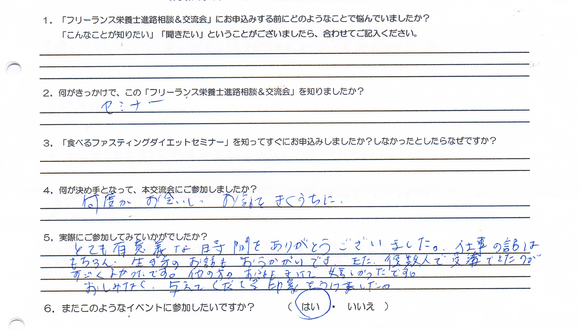 1．「フリーランス栄養士進路相談＆交流会」にお申込みする前にどのようなことで悩んでいましたか？
「こんなことが知りたい」「聞きたい」ということがございましたら、合わせてご記入ください。
2．何がきっかけで、この「フリーランス栄養士進路相談＆交流会」を知りましたか？
セミナー
3．「食べるファスティングダイエットセミナー」を知ってすぐにお申込みしましたか？しなかったとしたらなぜですか？
4．何が決め手となって、本交流会にご参加しましたか？
何度か お会いし お話を きくうちに.
5．実際にご参加してみていかがでしたか？
とても有意義な時間をありがとうございました。仕事の話は
もちろん、生き方のお話も また、複数人で交流できたのが
すごくよかったです。他の方の お話もきけて 嬉しかったです。
おしみなく、与えてくださる印象をうけました。
6．またこのようなイベントに参加したいですか？ （ はい ・ いいえ ）